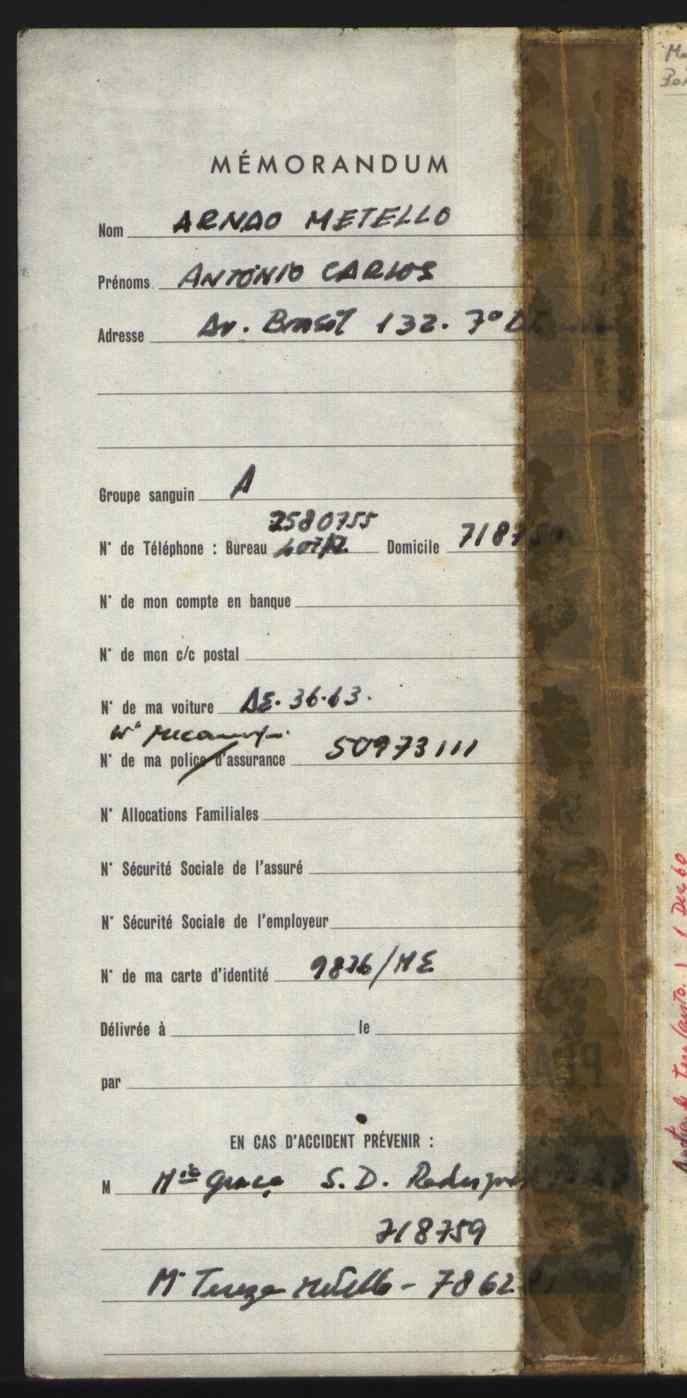 MÉMORANDUM
Nom ARNAO METELLO
Prénoms ANTÓNIO CARLOS
Adresse Av. Brasil 132. 7º
Groupe sanguin A
2580755
N° de Téléphone : Bureau Domicile 718759
N° de mon compte en banque
N° de mon c/c postal
N° de ma voiture AE. 36.63.
N° de ma police d'assurance 50973111
N° Allocations Familiales
N° Sécurité Sociale de l'assuré
N° Sécurité Sociale de l'employeur
N° de ma carte d'identité 9836/ME
Délivrée à le
par
EN CAS D'ACCIDENT PRÉVENIR :
M Mª Graça S. D.
718759
Mª Tereza Metello - 7862